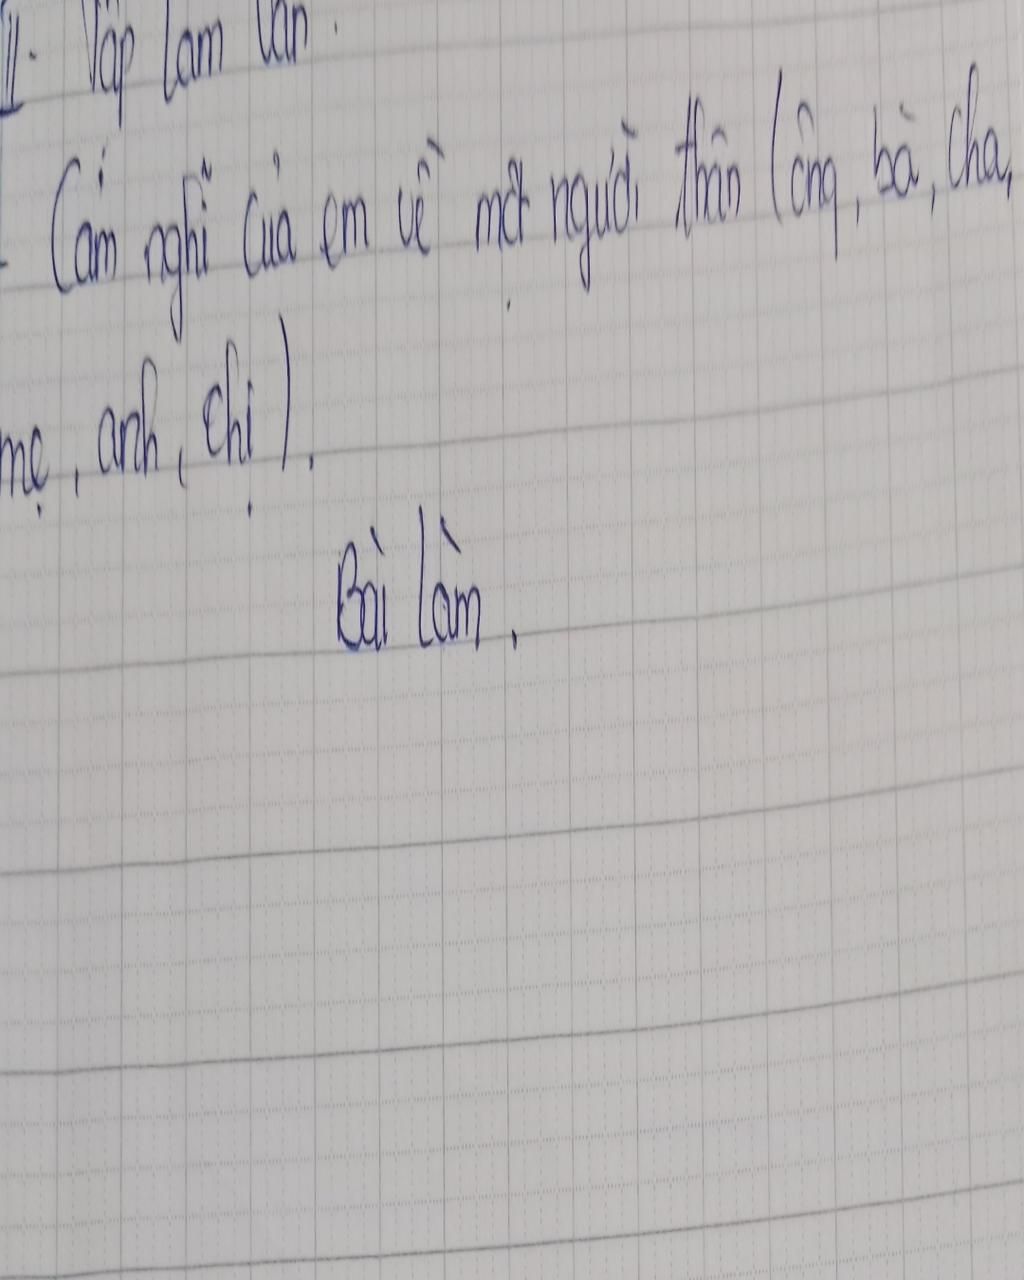 II. Tập làm văn.
- Cảm nghĩ của em về một người thân (ông, bà, cha,
mẹ, anh, chị).
Bài làm.